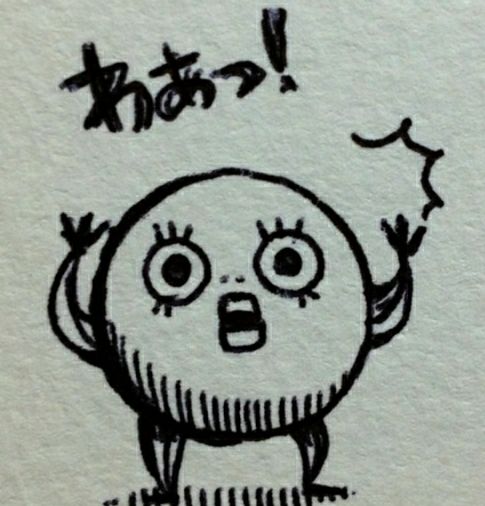 わあっ!